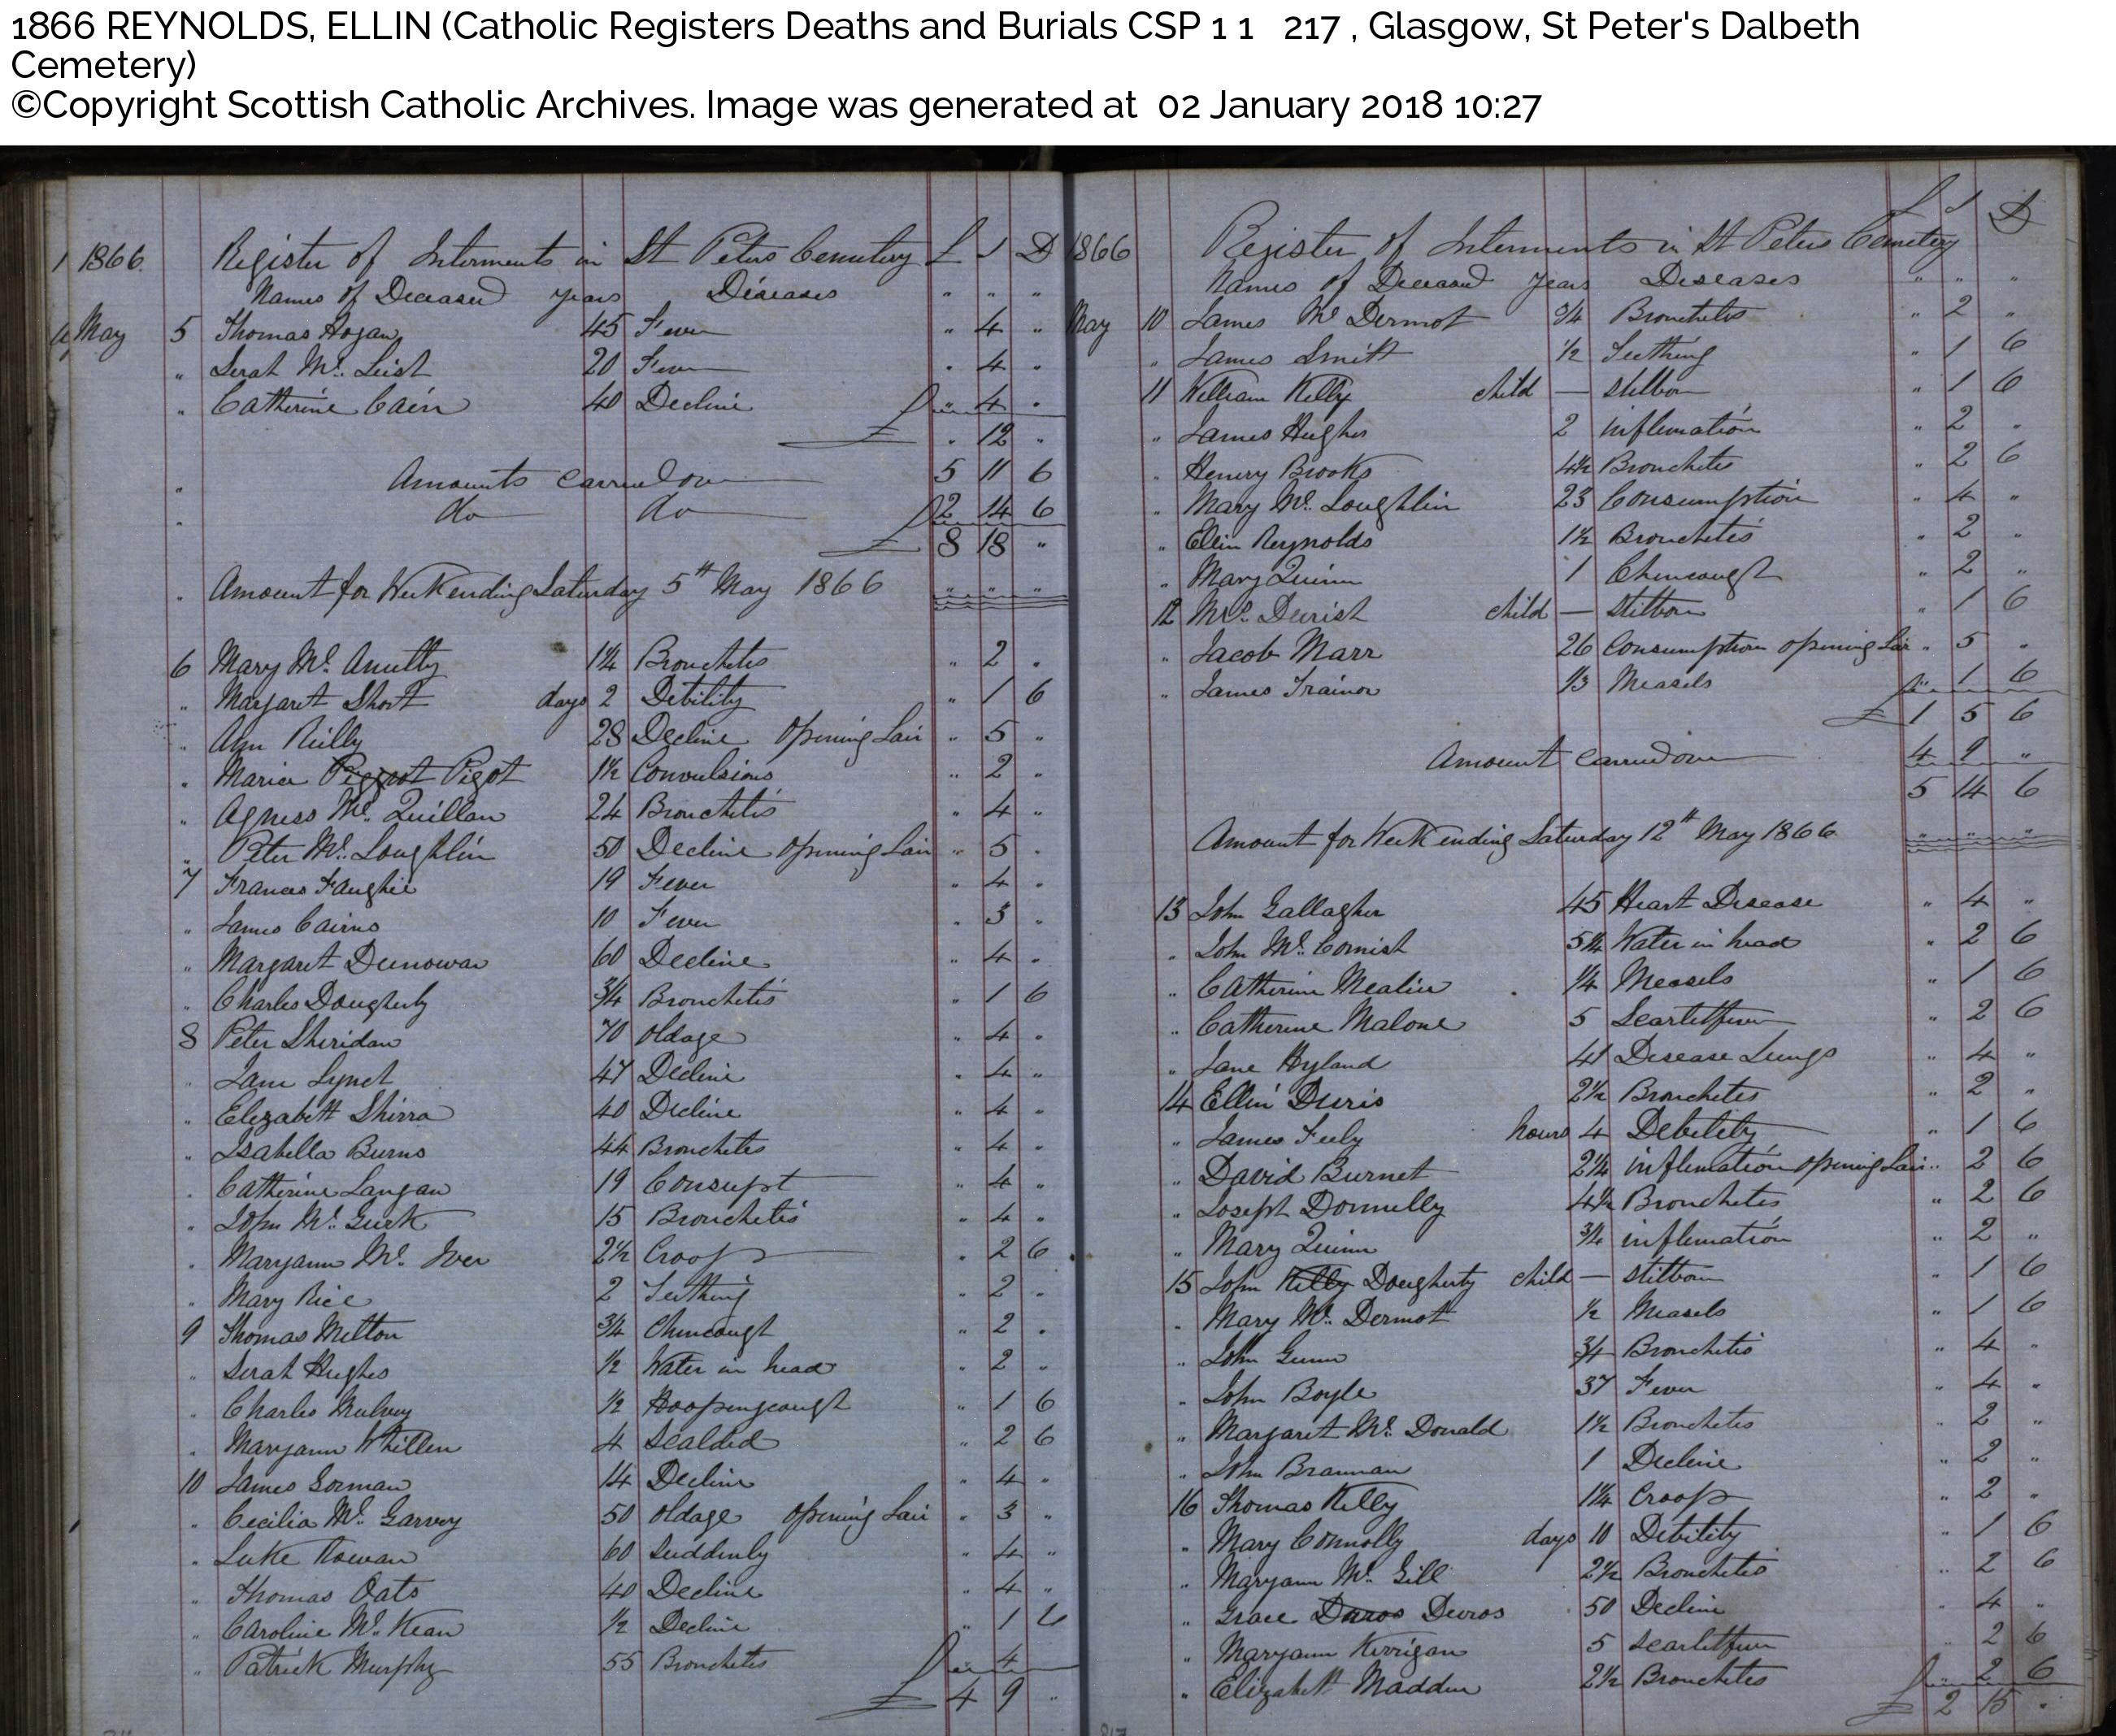 1866 REYNOLDS, ELLIN (Catholic Registers Deaths and Burials CSP 1 1 217 , Glasgow, St Peter's Dalbeth
Cemetery)
©Copyright Scottish Catholic Archives. Image was generated at 02 January 2018 10:27
1 1866. Register of Interments in St Peters Cemetery £ S D
Names of Deceased years Diseases " " "
May 5 Thomas Hogan 45 Fever " 4 "
" Serah Mc. Leish 20 Fever " 4 "
" Catherine Cain 40 Decline " 4 "
£ " 12 "
" Amounts carriedown 5 11 6
" do do 2 14 6
£ 8 18 "
" Amount for Week ending Saturday 5th May 1866 " " "
6 Mary Mc. Anulty 1¼ Bronchetes " 2 "
" Margaret Short days 2 Debility " 1 6
" Ann Reilly 28 Decline opening Lair " 5 "
" Maria Piggot Pigot 1½ Convulsions " 2 "
" Agness Mc. Quillan 24 Bronchetis " 4 "
" Peter Mc. Loughlin 50 Decline opening Lair " 5 "
7 Frances Faughie 19 Fever " 4 "
" James Cairns 10 Fever " 3 "
" Margaret Dunowan 60 Decline " 4 "
" Charles Dougherty ¾ Bronchetis " 1 6
8 Peter Sheridan 70 oldage " 4 "
" Jane Lynch 47 Decline " 4 "
" Elezabeth Shirra 40 Decline " 4 "
" Isabella Burns 44 Bronchetes " 4 "
" Catherine Langan 19 Consupt " 4 "
" John Mc. Gurk 15 Bronchetis " 4 "
" Maryann Mc. Iver 2½ Croop " 2 6
" Mary Rice 2 Teething " 2 "
9 Thomas Melton ¾ Chincough " 2 "
" Serah Hughes ½ Water in head " 2 "
" Charles Mulvey ½ Hoopingcough " 1 6
" Maryann Whillen 4 Scalded " 2 6
10 James Gorman 14 Decline " 4 "
" Cecilia Mc. Garvey 50 oldage opening Lair " 3 "
" Luke Rowan 60 Suddenly " 4 "
" Thomas Oats 40 Decline " 4 "
" Caroline Mc. Kean ½ Decline " 1 6
" Patrick Murphy 55 Bronchetes " 4
£ 4 9 "
1866 Register of Interments in St Peters Cemetery £ S D
Names of Deceased Years Deseases " " "
May 10 James Mc Dermot ¾ Bronchetes " 2 "
" James Smith ½ Teething " 1 6
11 William Kelly child — stilbon " 1 6
" James Hughes 2 inflemation " 2 "
" Henery Brooks 4½ Bronchetes " 2 6
" Mary Mc. Loughlin 23 Consumption " 4 "
" Ellin Reynolds 1½ Bronchetes " 2 "
" Mary Quinn 1 Chincough " 2 "
12 child — stilbon " 1 6
" Jacob Marr 26 Consumption opening Lair " 5 "
" James Trainor ⅓ Measels " 1 6
£ 1 5 6
Amount carriedown 4 9 "
5 14 6
Amount for Week ending Saturday 12th May 1866 " " "
13 John Gallagher 45 Heart Desease " 4 "
" John Mc. Cornish 5¼ Water in head " 2 6
" Catherine Mealin ¼ Measels " 1 6
" Catherine Malone 5 Scarletfever " 2 6
" Jane Hyland 41 Desease Lungs " 4 "
14 Ellin Duris 2½ Bronchetes " 2 "
" James Feely hours 4 Debelety " 1 6
" David Burnet 2¼ inflemation opening Lair " 2 6
" Joseph Donnelly 4½ Bronchetes " 2 6
" Mary Quinn ¾ inflemation " 2 "
15 John Kelly Dougherty child — stilbon " 1 6
" Mary Mc. Dermot ½ Measels " 1 6
" John Gunn Bronchetis " 4 "
" John Boyle 37 Fever " 4 "
" Margaret Mc. Donald 1½ Bronchetes " 2 "
" John Brannan 1 Decline " 2 "
16 Thomas Kelly 1¼ Croop " 2 "
" Mary Connolly days 10 Debility " 1 6
" Maryann Mc. Gill 2½ Bronchetes " 2 6
" Grace Daros Devros 50 Decline " 4 "
" Maryann Kerrigan 5 Scarletfever " 2 6
" Elizabeth Madden 2½ Bronchetes " 2 6
£ 2 15 "